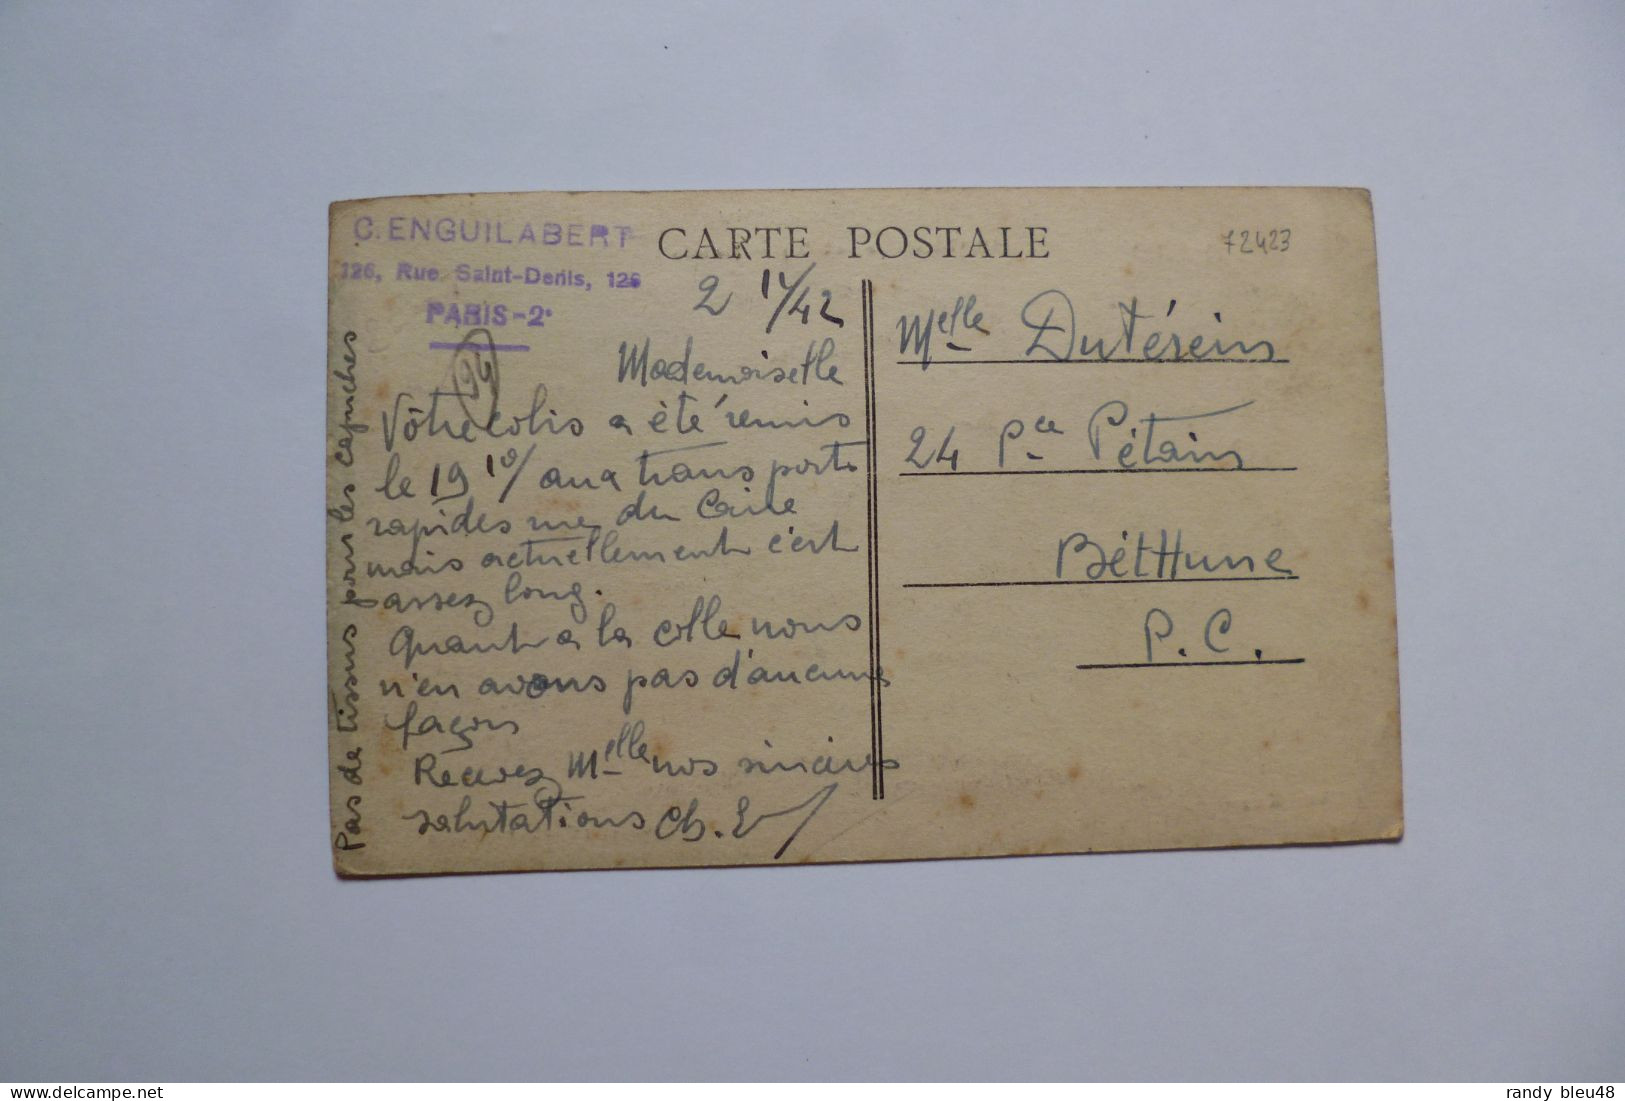 C. ENGUILABERT
126, Rue Saint-Denis, 126
PARIS-2e
CARTE POSTALE
72423
2 11/42
Mademoiselle
Vôtre colis a été remis
le 19 10/ aux transports
rapides rue du Caire
mais actuellement c'est
assez long.
Quant a la colle nous
n'en avons pas d'aucune
façons
Recevez Melle nos sincères
salutations Ch. E
Pas de tissus pour les capuches
Melle Dutérein
24 Pce Pétain
BétHune
P. C.
delcampe.net
randy bleu48